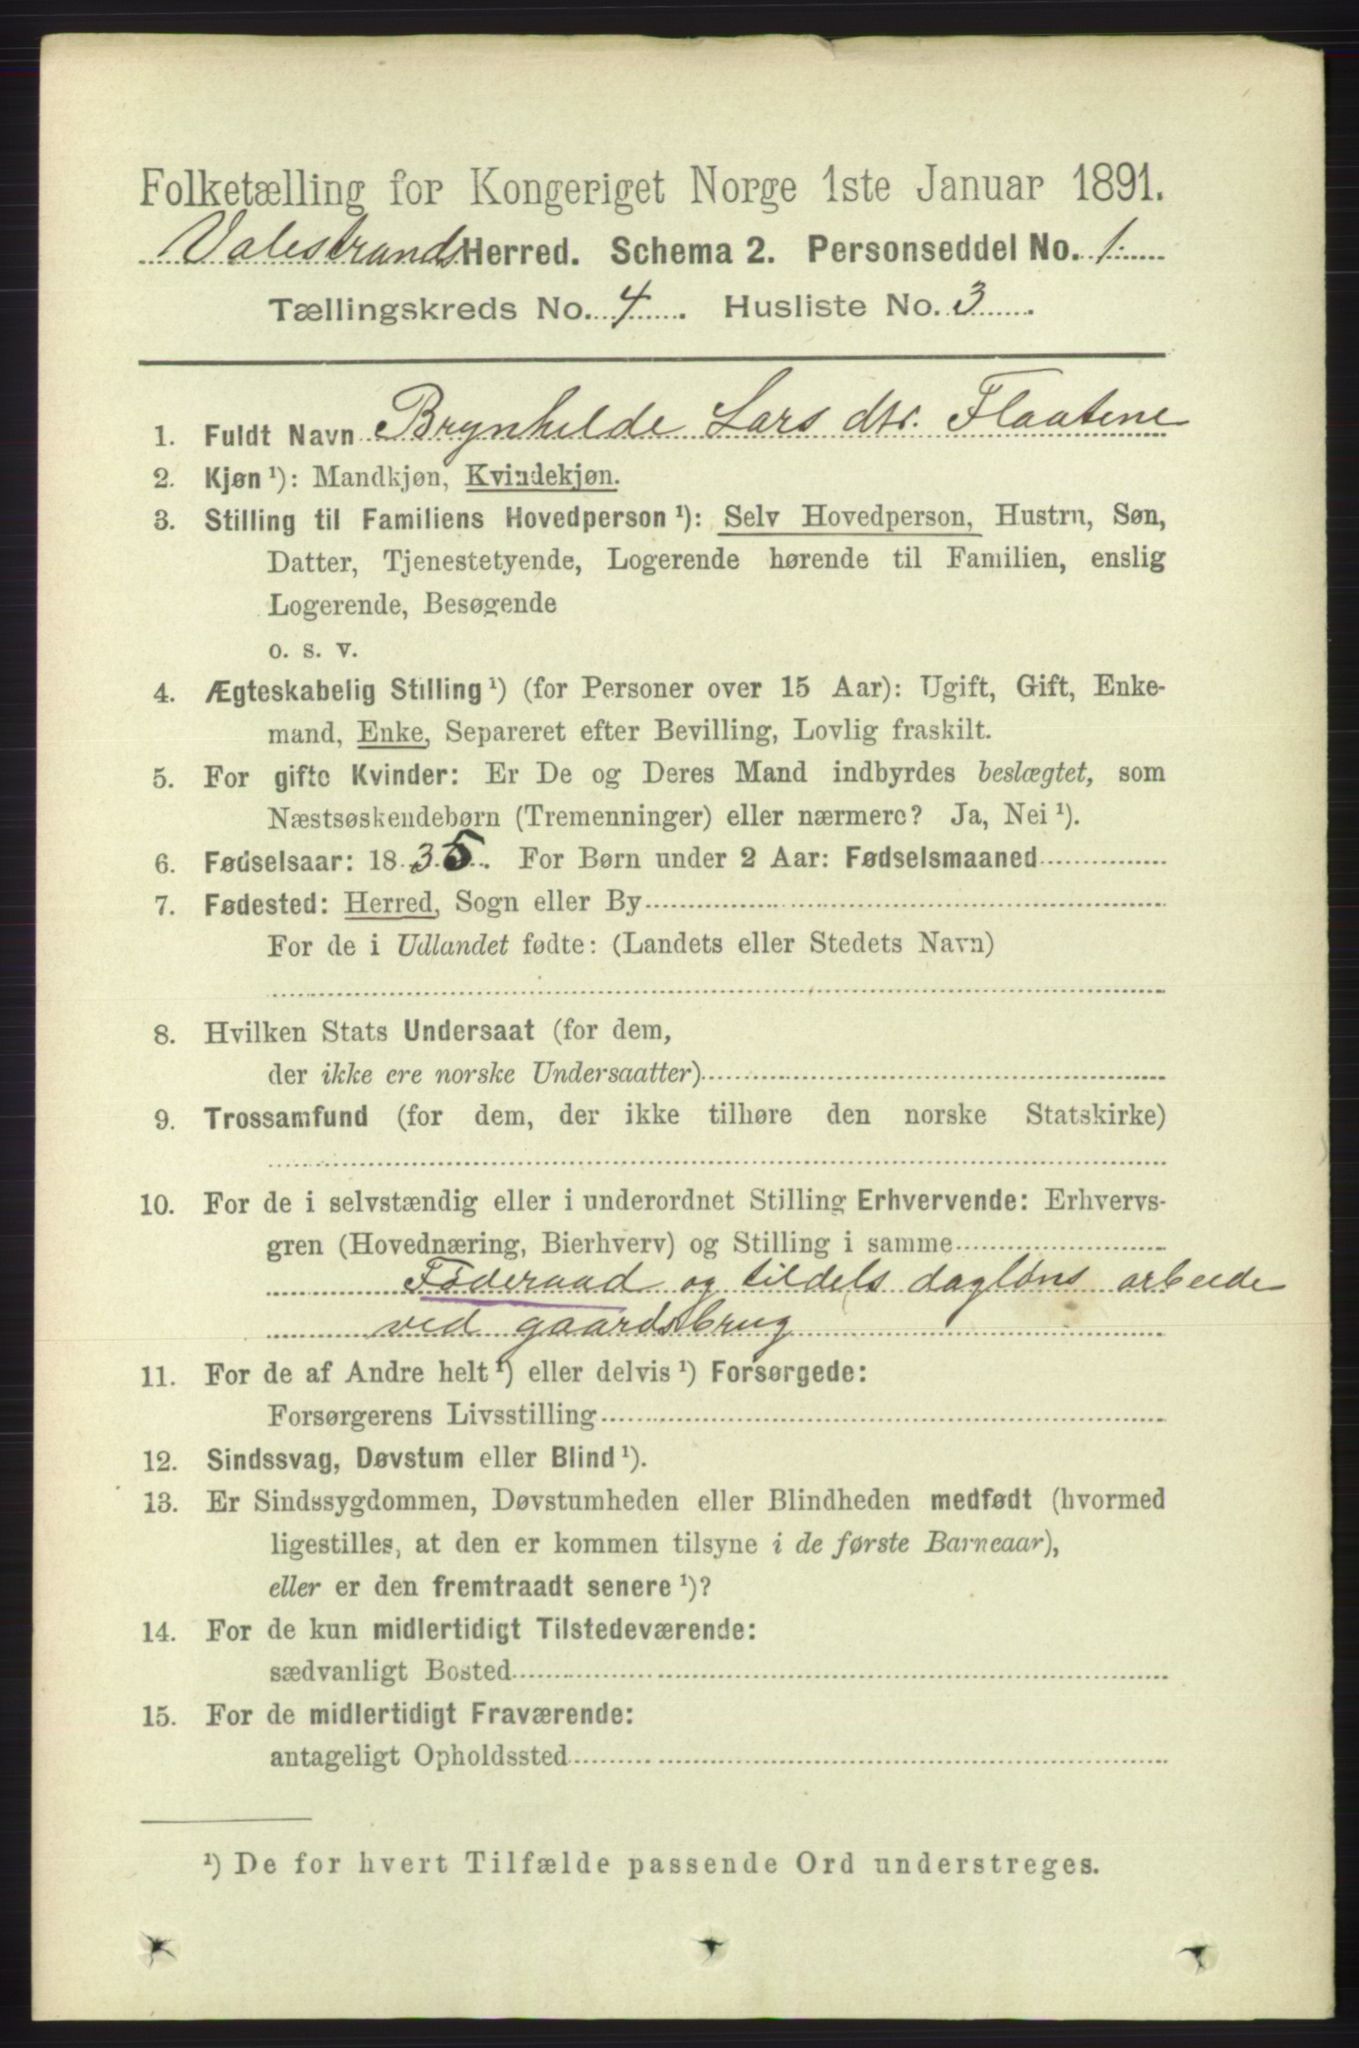 Folketælling for Kongeriget Norge 1ste Januar 1891.
Valestrands Herred. Schema 2. Personseddel No. 1.
Tællingskreds No. 4. Husliste No. 3.
1. Fuldt Navn Brynhilde Lars dtr. Flaatene
2. Kjøn ¹): Mandkjøn, Kvindekjøn.
3. Stilling til Familiens Hovedperson ¹): Selv Hovedperson, Hustru, Søn,
Datter, Tjenestetyende, Logerende hørende til Familien, enslig
Logerende, Besøgende
o. s. v.
4. Ægteskabelig Stilling ¹) (for Personer over 15 Aar): Ugift, Gift, Enke-
mand, Enke, Separeret efter Bevilling, Lovlig fraskilt.
5. For gifte Kvinder: Er De og Deres Mand indbyrdes beslægtet, som
Næstsøskendebørn (Tremenninger) eller nærmere? Ja, Nei ¹).
6. Fødselsaar: 1835. For Børn under 2 Aar: Fødselsmaaned
7. Fødested: Herred, Sogn eller By
For de i Udlandet fødte: (Landets eller Stedets Navn)
8. Hvilken Stats Undersaat (for dem,
der ikke ere norske Undersaatter)
9. Trossamfund (for dem, der ikke tilhøre den norske Statskirke)
10. For de i selvstændig eller i underordnet Stilling Erhvervende: Erhvervs-
gren (Hovednæring, Bierhverv) og Stilling i samme
Føderaad og tildels dagløns arbeide
ved gaardsbrug
11. For de af Andre helt ¹) eller delvis ¹) Forsørgede:
Forsørgerens Livsstilling
12. Sindssvag, Døvstum eller Blind ¹).
13. Er Sindssygdommen, Døvstumheden eller Blindheden medfødt (hvormed
ligestilles, at den er kommen tilsyne i de første Barneaar),
eller er den fremtraadt senere ¹)?
14. For de kun midlertidigt Tilstedeværende:
sædvanligt Bosted
15. For de midlertidigt Fraværende:
antageligt Opholdssted
¹) De for hvert Tilfælde passende Ord understreges.